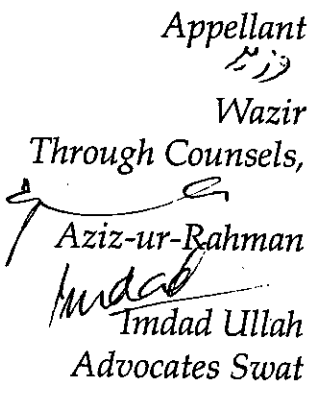 Appellant
وزیر
Wazir
Through Counsels,
Aziz-ur-Rahman
Imdad
Imdad Ullah
Advocates Swat